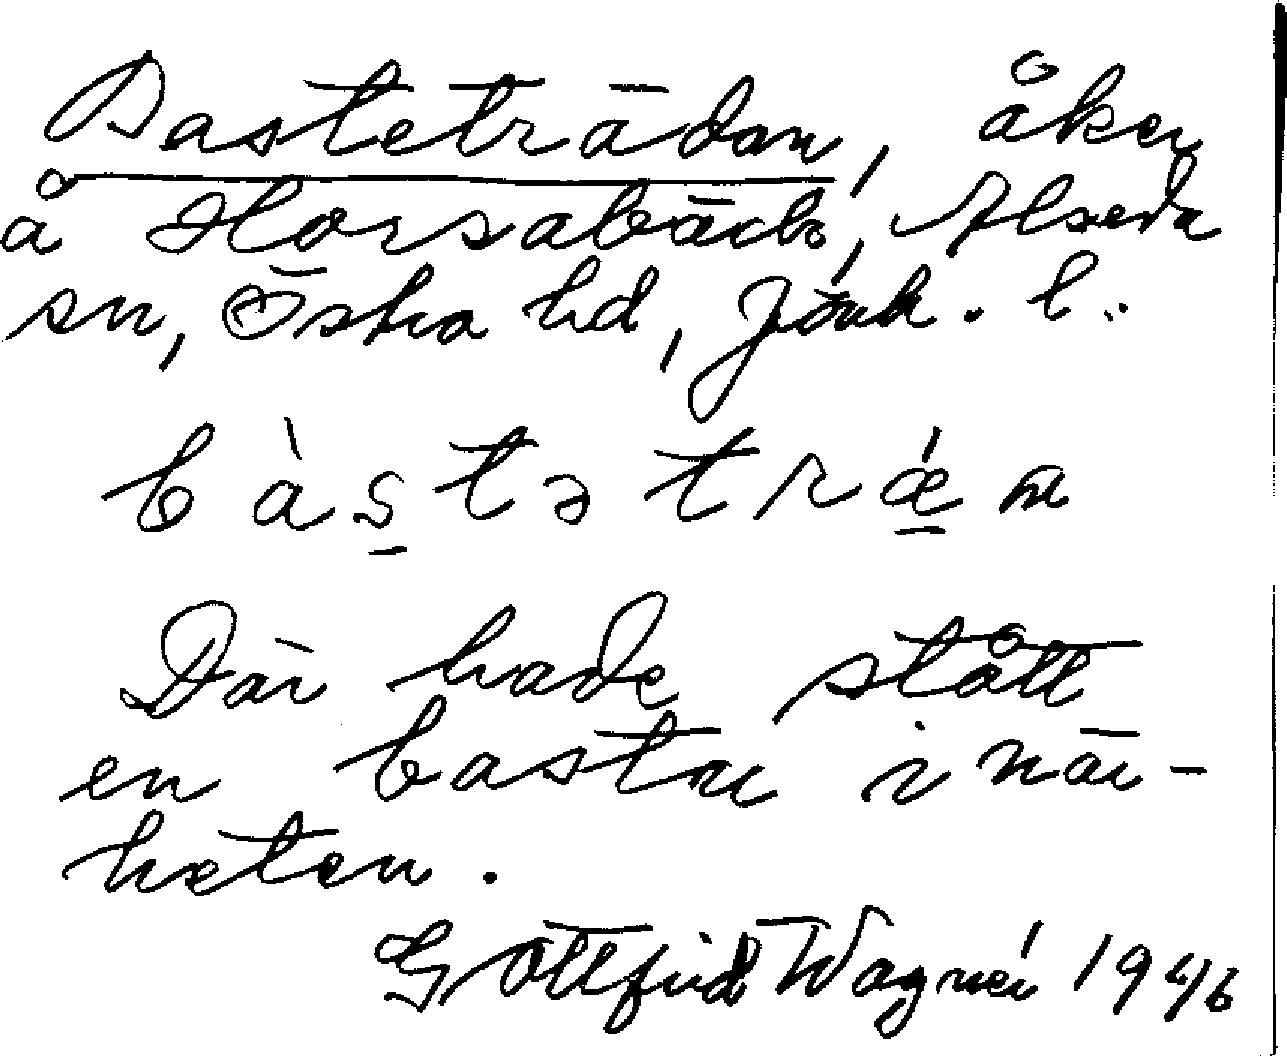 Basteträdan, åker
å Horsabäck, Alseda
sn, Östra hd, Jönk. l.
bàs̠tə trǽ̠n
Där hade stått
en bastu i när-
heten.
Gottfrid Wagnér 1946